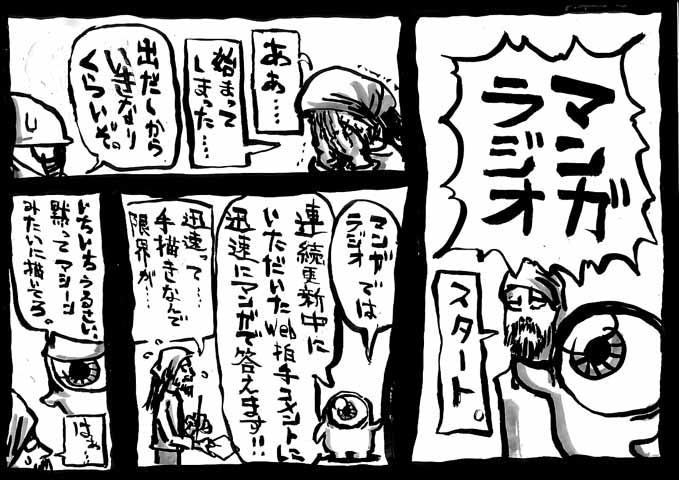 マンガ
ラジオ
スタート。
ああ……
始まって
しまった……
出だしから
いきなり
くらいぞ。
マンガ
ラジオでは
連続更新中に
いただいたWeb拍手コメントに
迅速にマンガで答えます!!
迅速って……
手描きなんで
限界が……
いちいちうるさい。
黙ってマシーン
みたいに描いてろ。
はぁ…